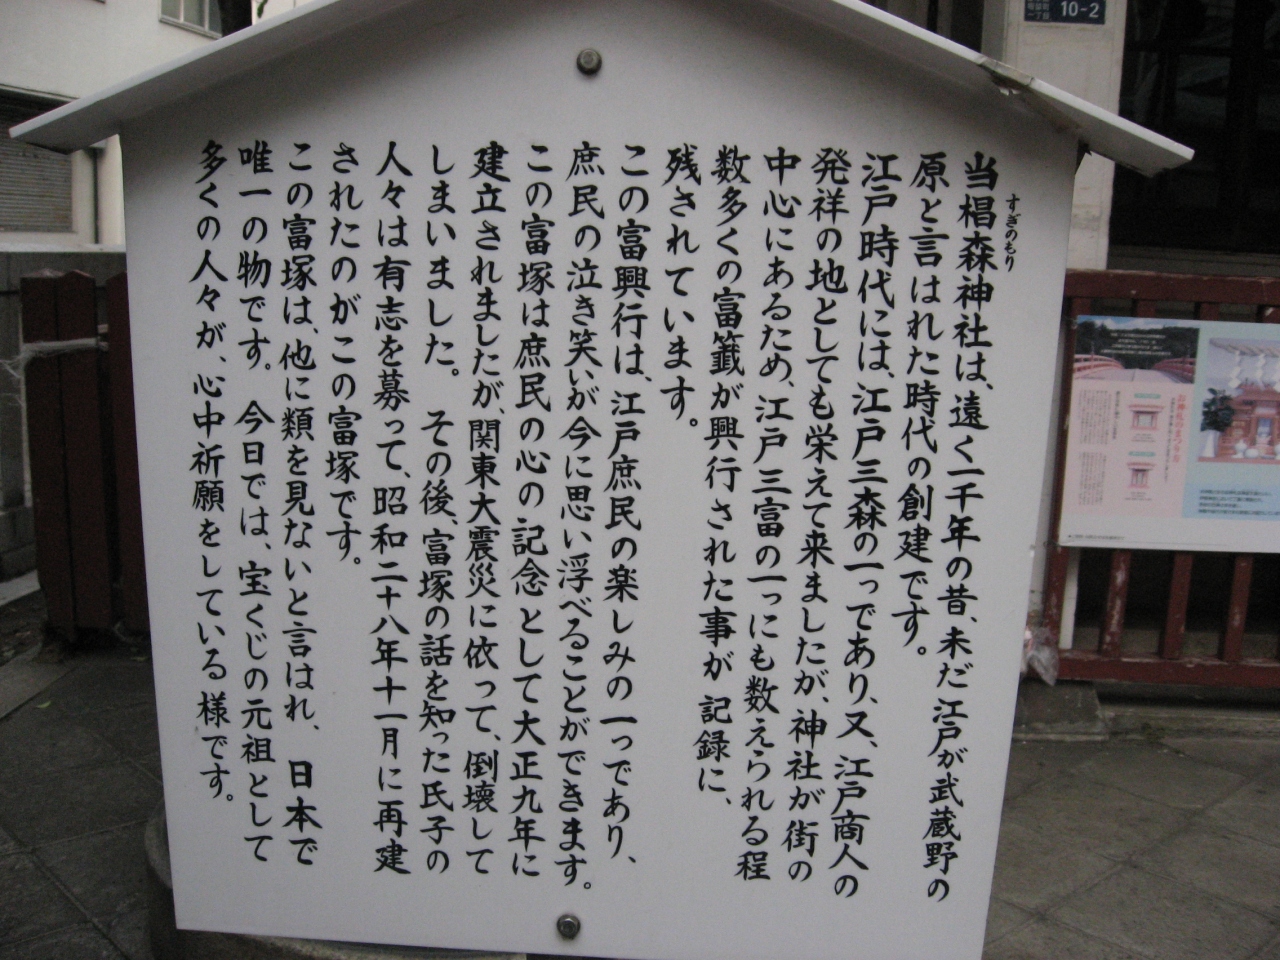 当椙森神社は、遠く一千年の昔、未だ江戸が武蔵野の
すぎのもり
原と言はれた時代の創建です。
江戸時代には、江戸三森の一っであり、又、江戸商人の
発祥の地としても栄えて来ましたが、神社が街の
中心にあるため、江戸三富の一っにも数えられる程
数多くの富籤が興行された事が記録に、
残されています。
この富興行は、江戸庶民の楽しみの一っであり、
庶民の泣き笑いが今に思い浮べることができます。
この富塚は庶民の心の記念として大正九年に
建立されましたが、関東大震災に依って、倒壊して
しまいました。 その後、富塚の話を知った氏子の
人々は有志を募って、昭和二十八年十一月に再建
されたのがこの富塚です。
この富塚は、他に類を見ないと言はれ、日本で
唯一の物です。今日では、宝くじの元祖として
多くの人々が、心中祈願をしている様です。
10-2